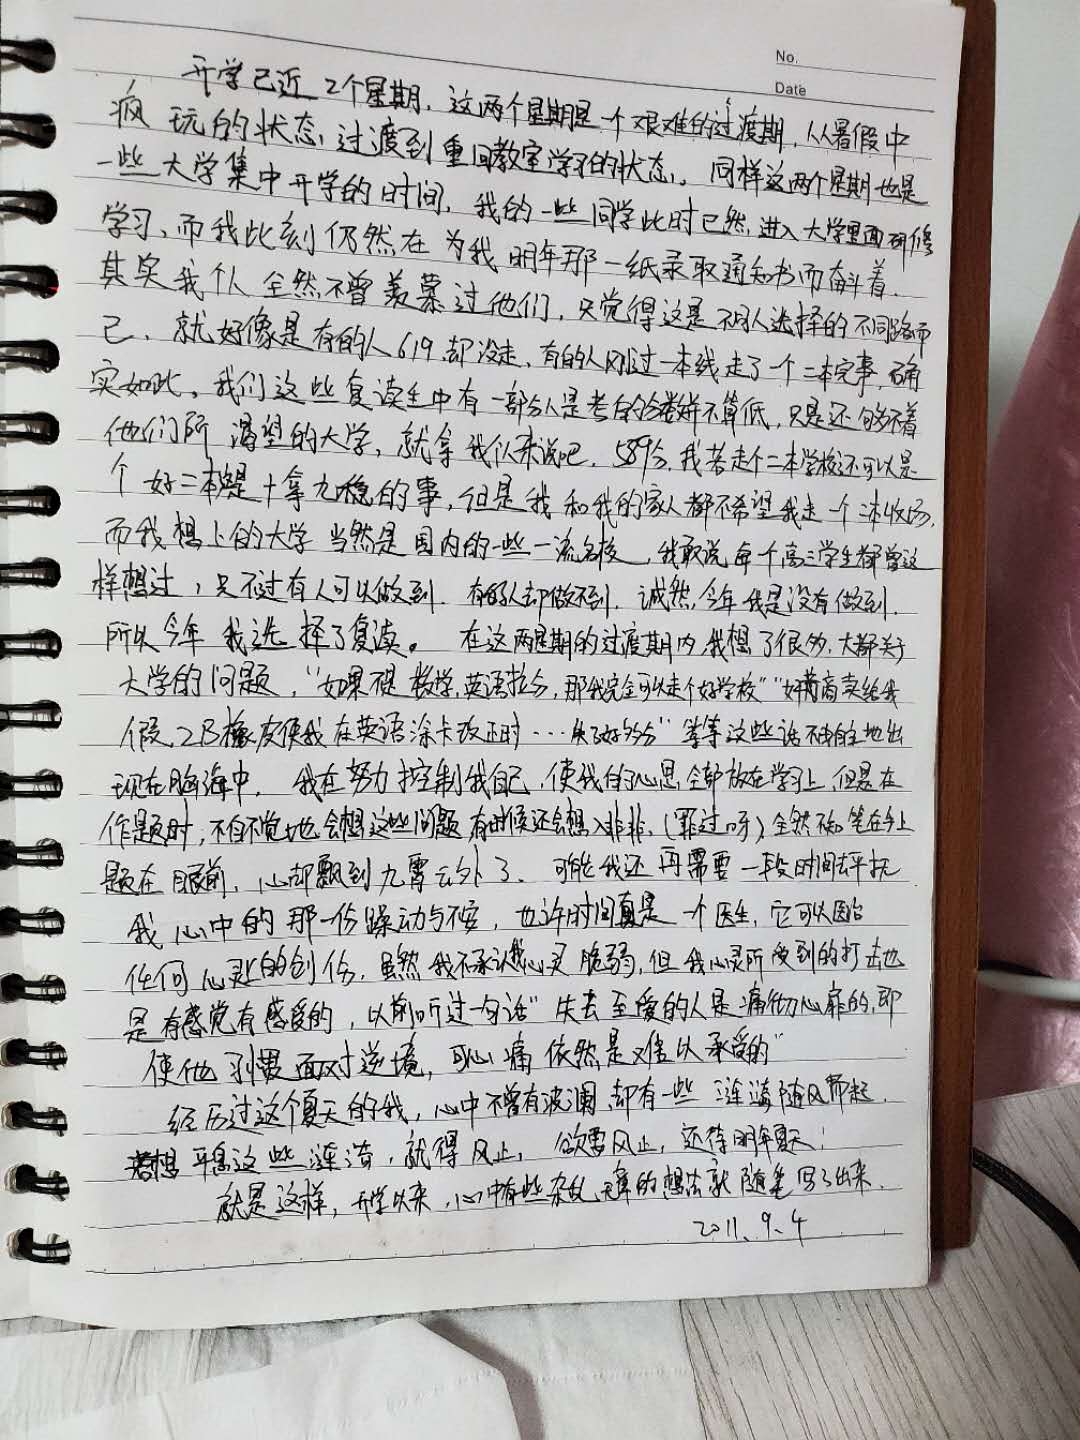 No.
Date
开学已近2个星期，这两个星期是一个艰难的过渡期，从暑假中
疯玩的状态，过渡到重回教室学习的状态。同样这两个星期也是
一些大学集中开学的时间，我的一些同学此时已然进入大学里面研修
学习、而我此刻仍然在为我明年那一纸录取通知书而奋斗着.
其实我们全然不曾羡慕过他们，只觉得这是不同人选择的不同路而
已，就好像是有的人619却没走、有的人刚过一本线走了一个二本完事，确
实如此。我们这些复读生中有一部分人是考的分数并不算低，只是还够不着
他们所渴望的大学，就拿我们来说吧，589分，我若走个二本学校还可以是
个好二本是十拿九稳的事，但是我和我的家人都不希望我走一个二本收场，
而我想上的大学当然是国内的一些一流名校，我敢说每个高三学生都曾这
样想过，只不过有人可以做到，有的人却做不到，诚然，今年我是没有做到.
所以今年我选择了复读。在这两星期的过渡期内，我想了很多，大都关于
大学的问题，“如果不是数学，英语拉分，那我完全可以走个好学校”“奸商卖给我
假2B橡皮使我在英语涂卡改正时……失了好多分”等等这些话不自主地出
现在脑海中，我在努力控制我自己，使我的心思全部放在学习上，但是在
作题时，不自不觉地会想这些问题，有时候还会想入非非，(罪过呀)全然不知笔在手上
题在眼前，心却飘到九霄云外了、可能我还再需要一段时间去平抚
我心中的那一份躁动与不安，也许时间真是一个医生，它可以医治
任何心灵的创伤，虽然我不承认我心灵脆弱，但我心灵所受到的打击也
是有感觉有感受的，以前听过一句话“失去至爱的人是痛彻心扉的，即
使他习惯面对逆境，可心痛依然是难以承受的”
经历过这个夏天的我，心中不曾有波澜，却有一些涟漪随风而起.
若想平息这些涟漪，就得风止，欲要风止，还待明年夏天；
就是这样，开学以来，心中有些杂乱无章的想法就随笔写了出来.
2011.9.4